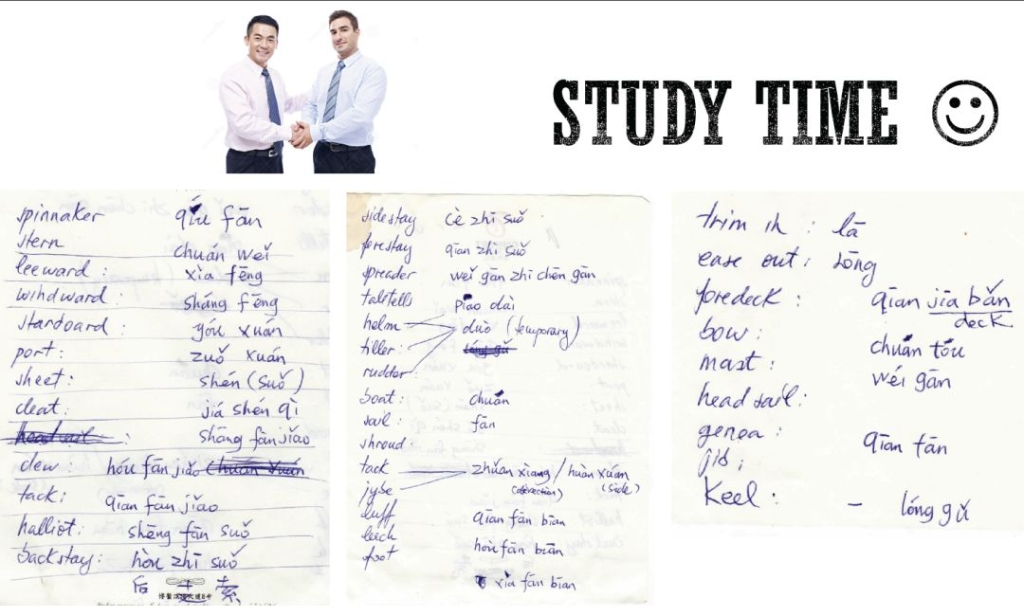 STUDY TIME
spinnaker qíu fān
stern chuán weǐ
leeward : xìa fēng
windward : sháng fēng
stardoard : yóu xuán
port : zuǒ xuán
sheet : shén (suǒ)
cleat : jia shén qì
shāng fān jiǎo
clew : hóu fān jiǎo
tack : qīan fān jiǎo
halliot : shēng fān suǒ
backstay : hòu zhī suǒ
后 索
sidestay cè zhī suǒ
forestay qīan zhi suǒ
spreader weí gān zhī chēn gān
taltells piāo dài
helm duò (temporary)
tiller :
rudder :
boat : chuán
sail : fān
shroud
tack zhuǎn xìang / huàn xuán
jybe (direction) (side)
luff qīan fān bīan
leech hòu fān bīan
foot xìa fān bian
trim in : lā
ease out : sōng
foredeck : qīan jia bǎn
deck
bow : chuán tóu
mast : wéi gān
head sail :
genoa : qīan fān
jib ;
Keel : – lóng gǔ